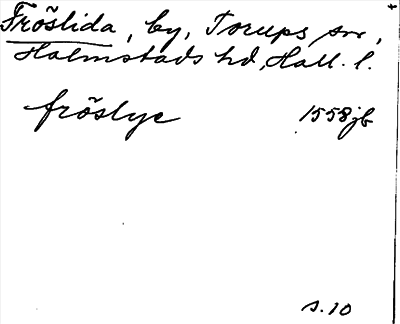 Fröslida, by, Torups sn,
Halmstads hd, Hall. l.
fröslye 1558 jb
s. 10